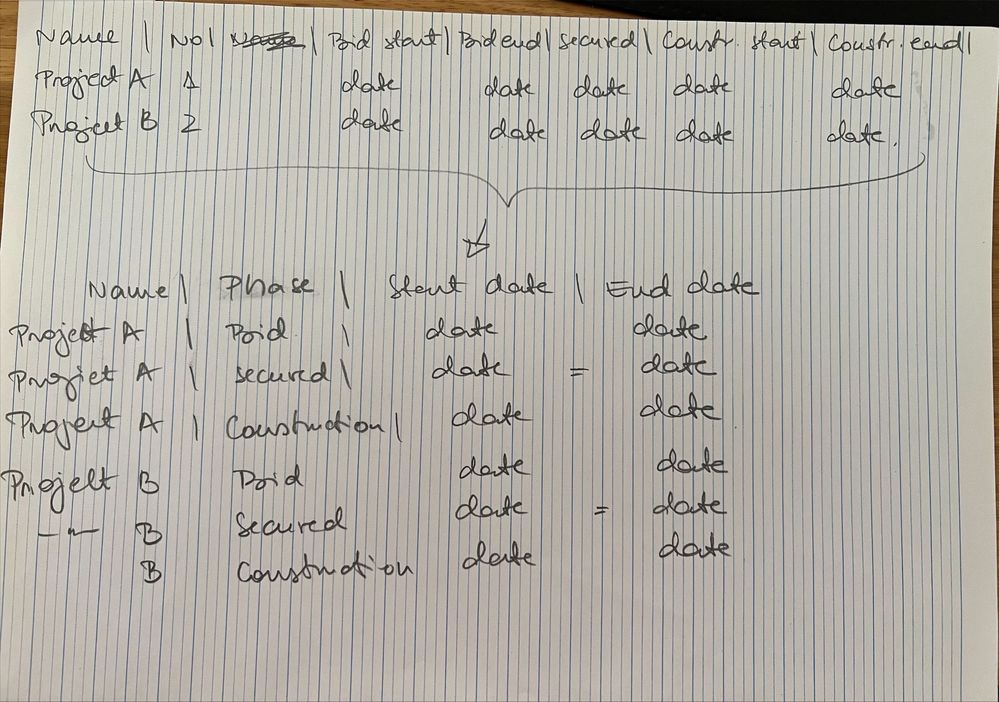 Name | No | | Bid start | Bid end | secured | Constr. start | Constr. end |
Project A 1 date date date date date
Project B 2 date date date date date.
Name | Phase | Start date | End date
Project A | Bid | date date
Project A | secured | date = date
Project A | Construction | date date
Project B Bid date date
-"- B Secured date = date
B Construction date date